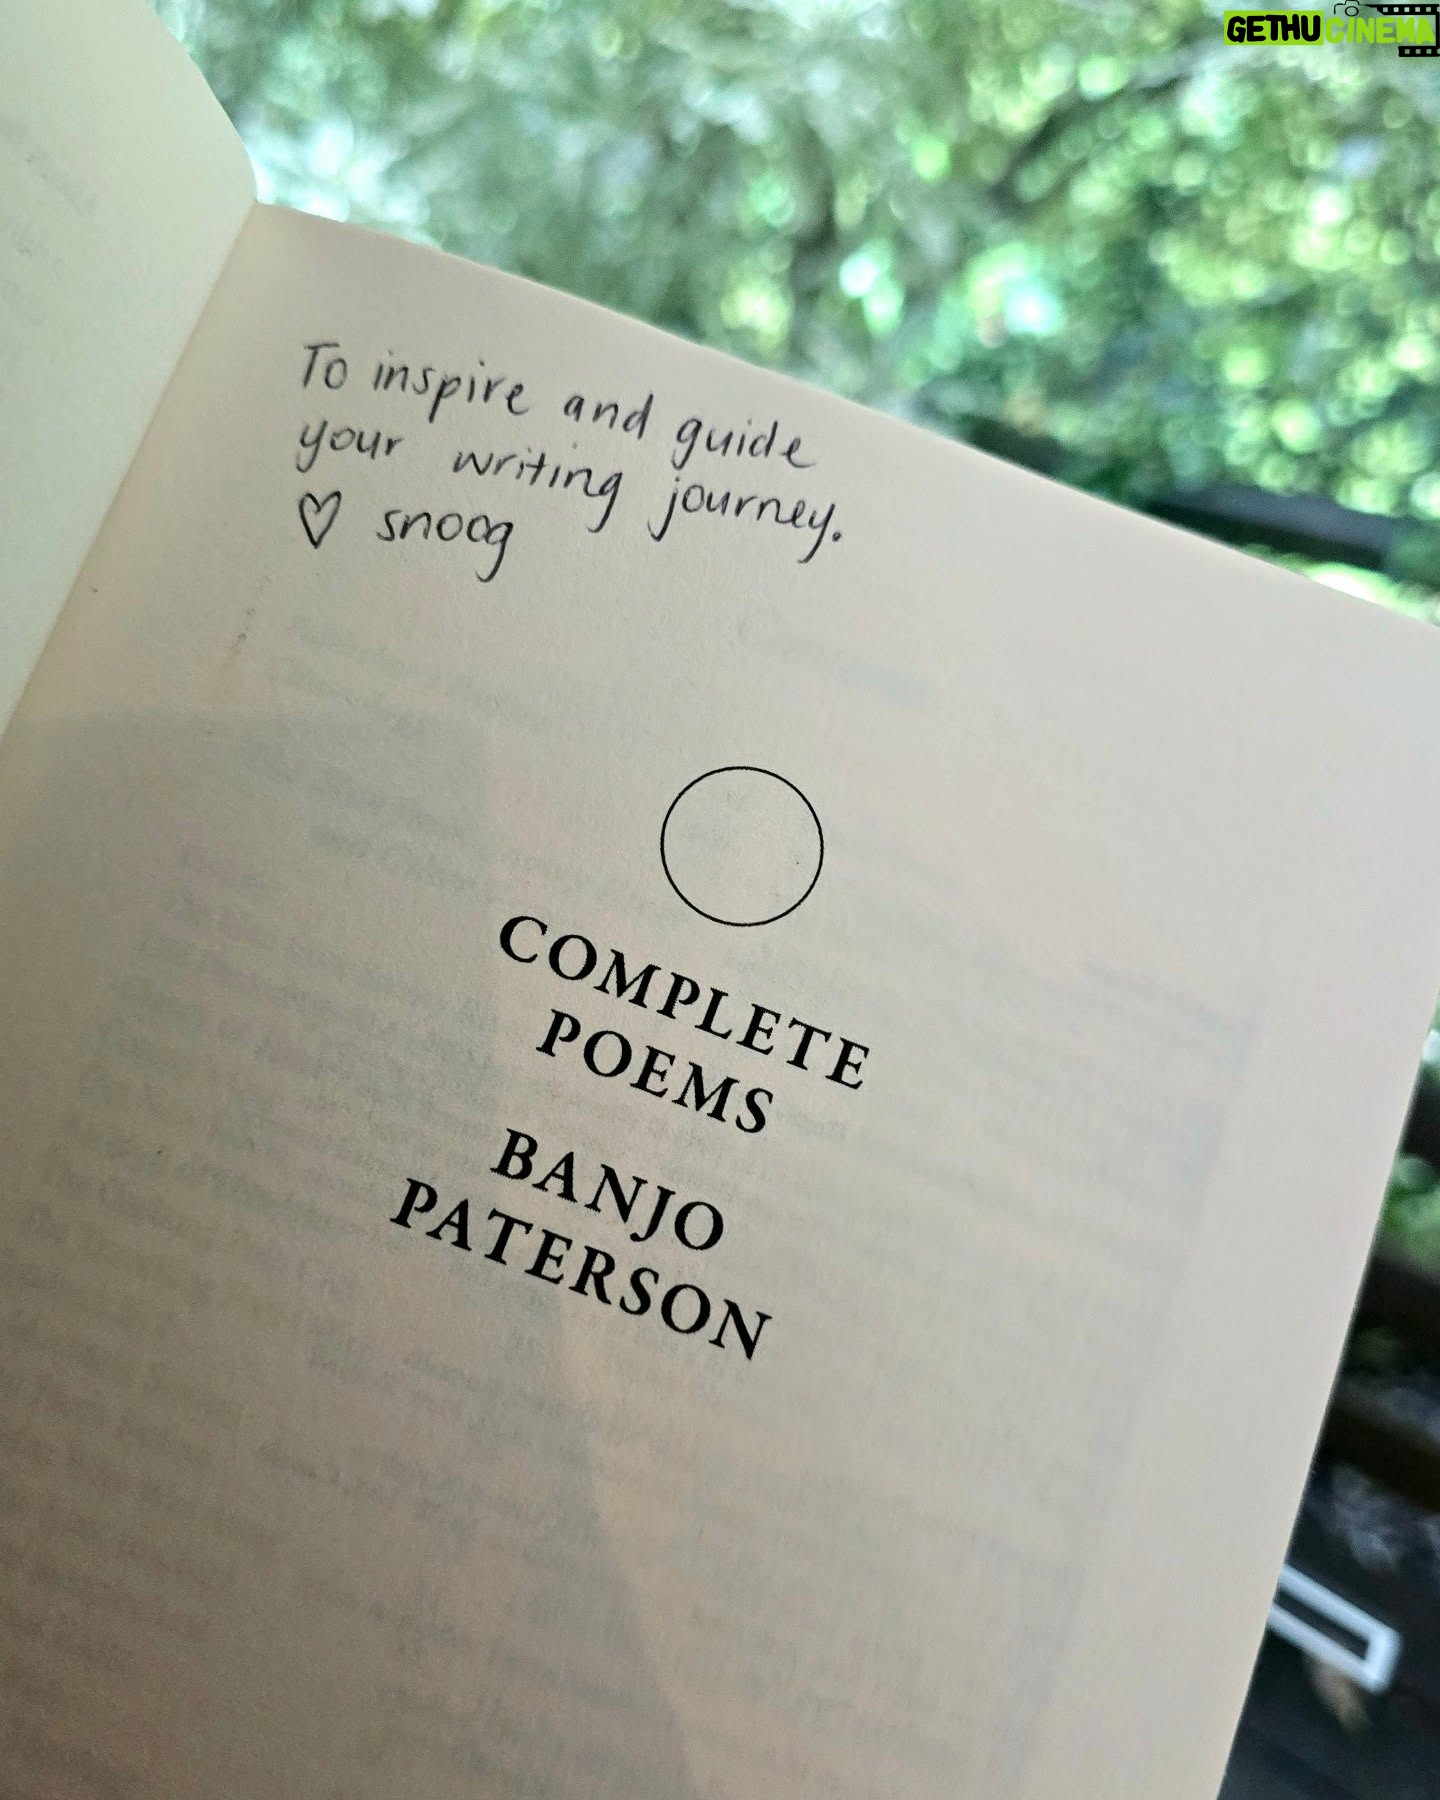 GETHUCINEMA
To inspire and guide
your writing journey.
♡ snoog
COMPLETE
POEMS
BANJO
PATERSON